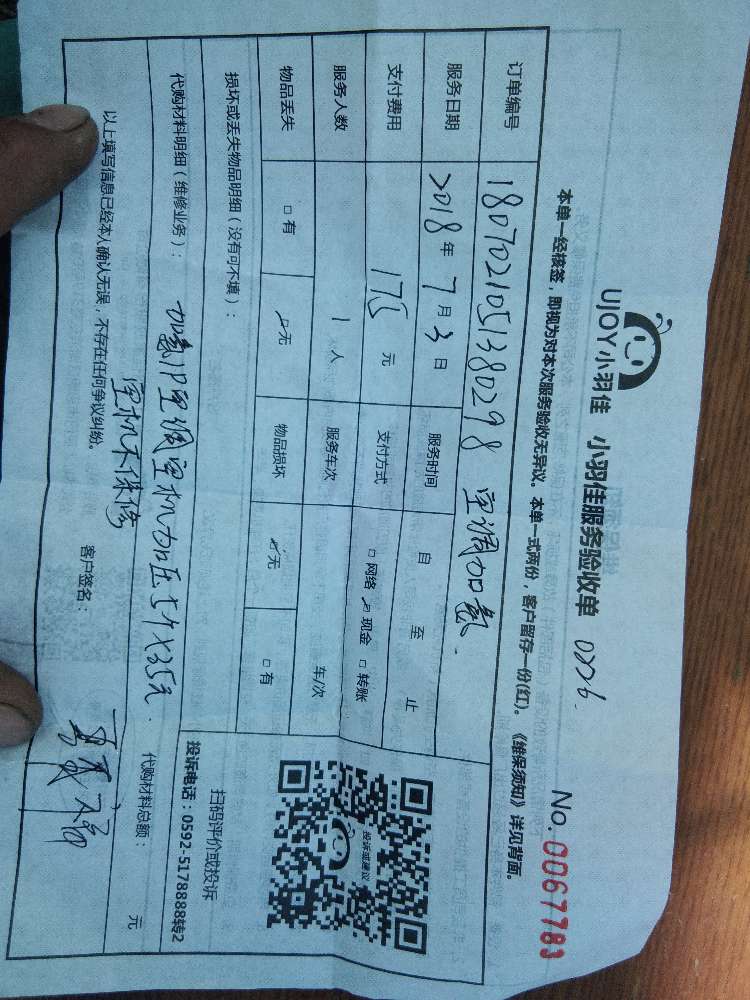 UJOY小羽佳 小羽佳服务验收单 0226.
No. 0067783
本单一经核签，即视为对本次服务验收无异议。本单一式两份，客户留存一份(红)。《维保须知》详见背面。
订单编号 1807021051380298 空调加氨.
服务日期 2018年7月3日 服务时间 自 至 止
支付费用 175元 支付方式 □网络 ☑现金 □转账
服务人数 1人 服务车次 车/次
物品丢失 □有 ☑无 物品损坏 ☑无 □有
损坏或丢失物品明细（没有可不填）：
投诉或建议
扫码评价或投诉
投诉电话：0592-5178888转2
代购材料明细（维修业务）： 加氨1P空调室机加压5个x35元.
室机不保修
代购材料总额： 元
以上填写信息已经本人确认无误，不存在任何争议纠纷。 客户签名：